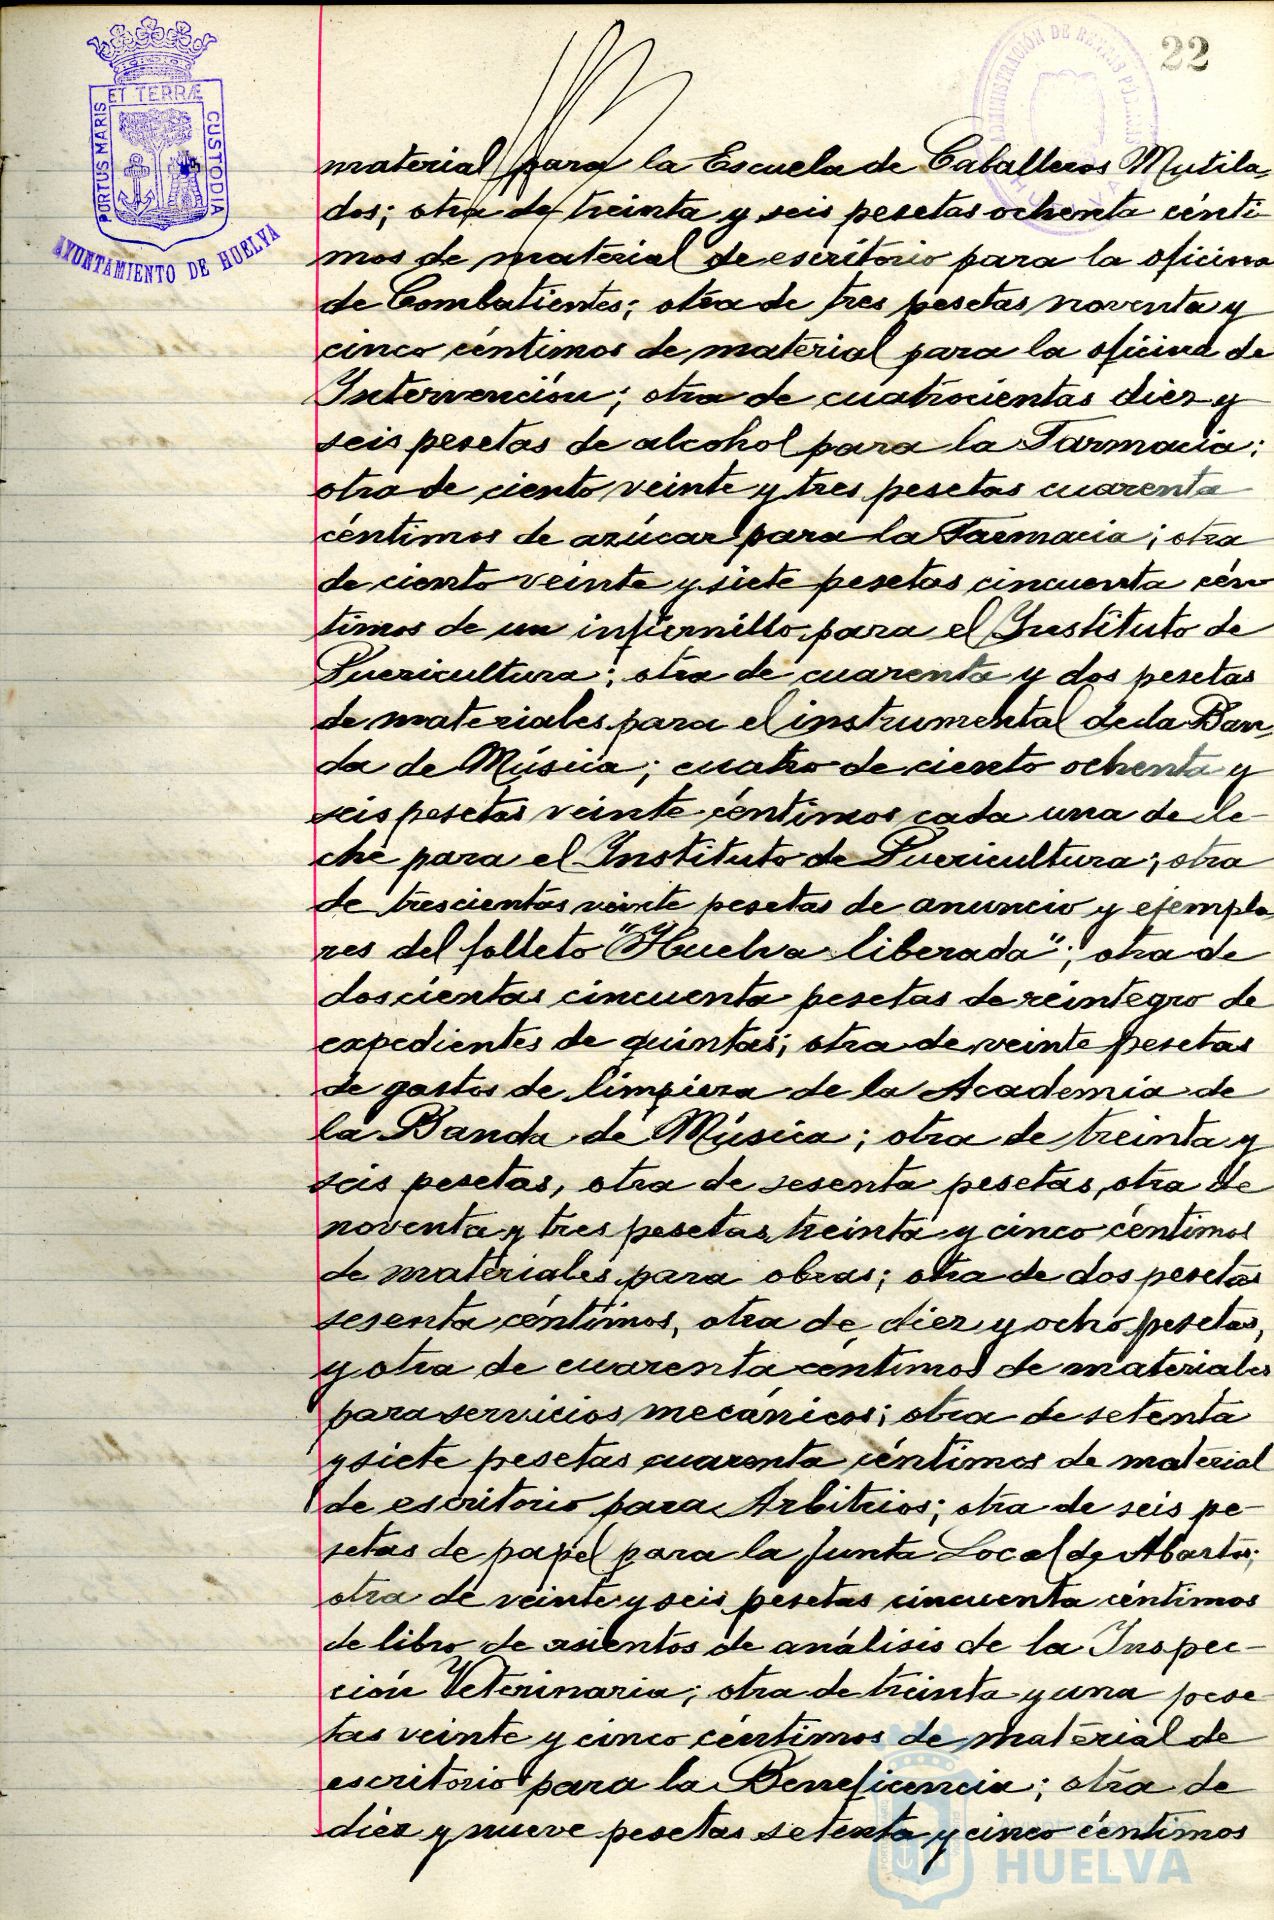 22
ET TERRÆ
PORTUS MARIS
CUSTODIA
AYUNTAMIENTO DE HUELVA
ADMINISTRACIÓN DE RENTAS PÚBLICAS
HUELVA
material para la Escuela de Caballeros Mutila-
dos; otra de treinta y seis pesetas ochenta cénti-
mos de material de escritorio para la oficina
de Combatientes; otra de tres pesetas noventa y
cinco céntimos de material para la oficina de
Intervención; otra de cuatrocientas diez y
seis pesetas de alcohol para la Farmacia;
otra de ciento veinte y tres pesetas cuarenta
céntimos de azúcar para la Farmacia; otra
de ciento veinte y siete pesetas cincuenta cén-
timos de un infiernillo para el Instituto de
Puericultura; otra de cuarenta y dos pesetas
de materiales para el instrumental de la Ban-
da de Música; cuatro de ciento ochenta y
seis pesetas veinte céntimos cada una de le-
che para el Instituto de Puericultura; otra
de trescientas veinte pesetas de anuncio y ejempla-
res del folleto "Huelva liberada"; otra de
doscientas cincuenta pesetas de reintegro de
expedientes de quintas; otra de veinte pesetas
de gastos de limpieza de la Academia de
la Banda de Música; otra de treinta y
seis pesetas, otra de sesenta pesetas, otra de
noventa y tres pesetas treinta y cinco céntimos
de materiales para obras; otra de dos pesetas
sesenta céntimos, otra de diez y ocho pesetas,
y otra de cuarenta céntimos de materiales
para servicios mecánicos; otra de setenta
y siete pesetas cuarenta céntimos de material
de escritorio para Arbitrios; otra de seis pe-
setas de papel para la Junta Local de Abastos;
otra de veinte y seis pesetas cincuenta céntimos
de libro de asientos de análisis de la Inspec-
ción Veterinaria; otra de treinta y una pese-
tas veinte y cinco céntimos de material de
escritorio para la Beneficencia; otra de
diez y nueve pesetas setenta y cinco céntimos
HUELVA